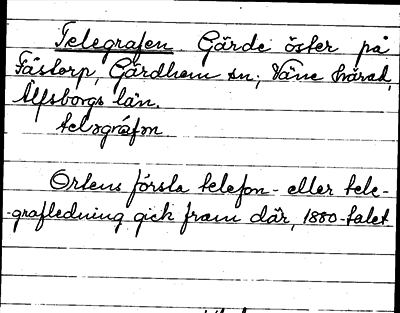 Telegrafen Gärde öster på
Fästorp, Gärdhem sn; Väne härad,
Älfsborgs län.
telǝgráfǝn
Ortens första telefon- eller tele-
-grafledning gick fram där, 1880-talet